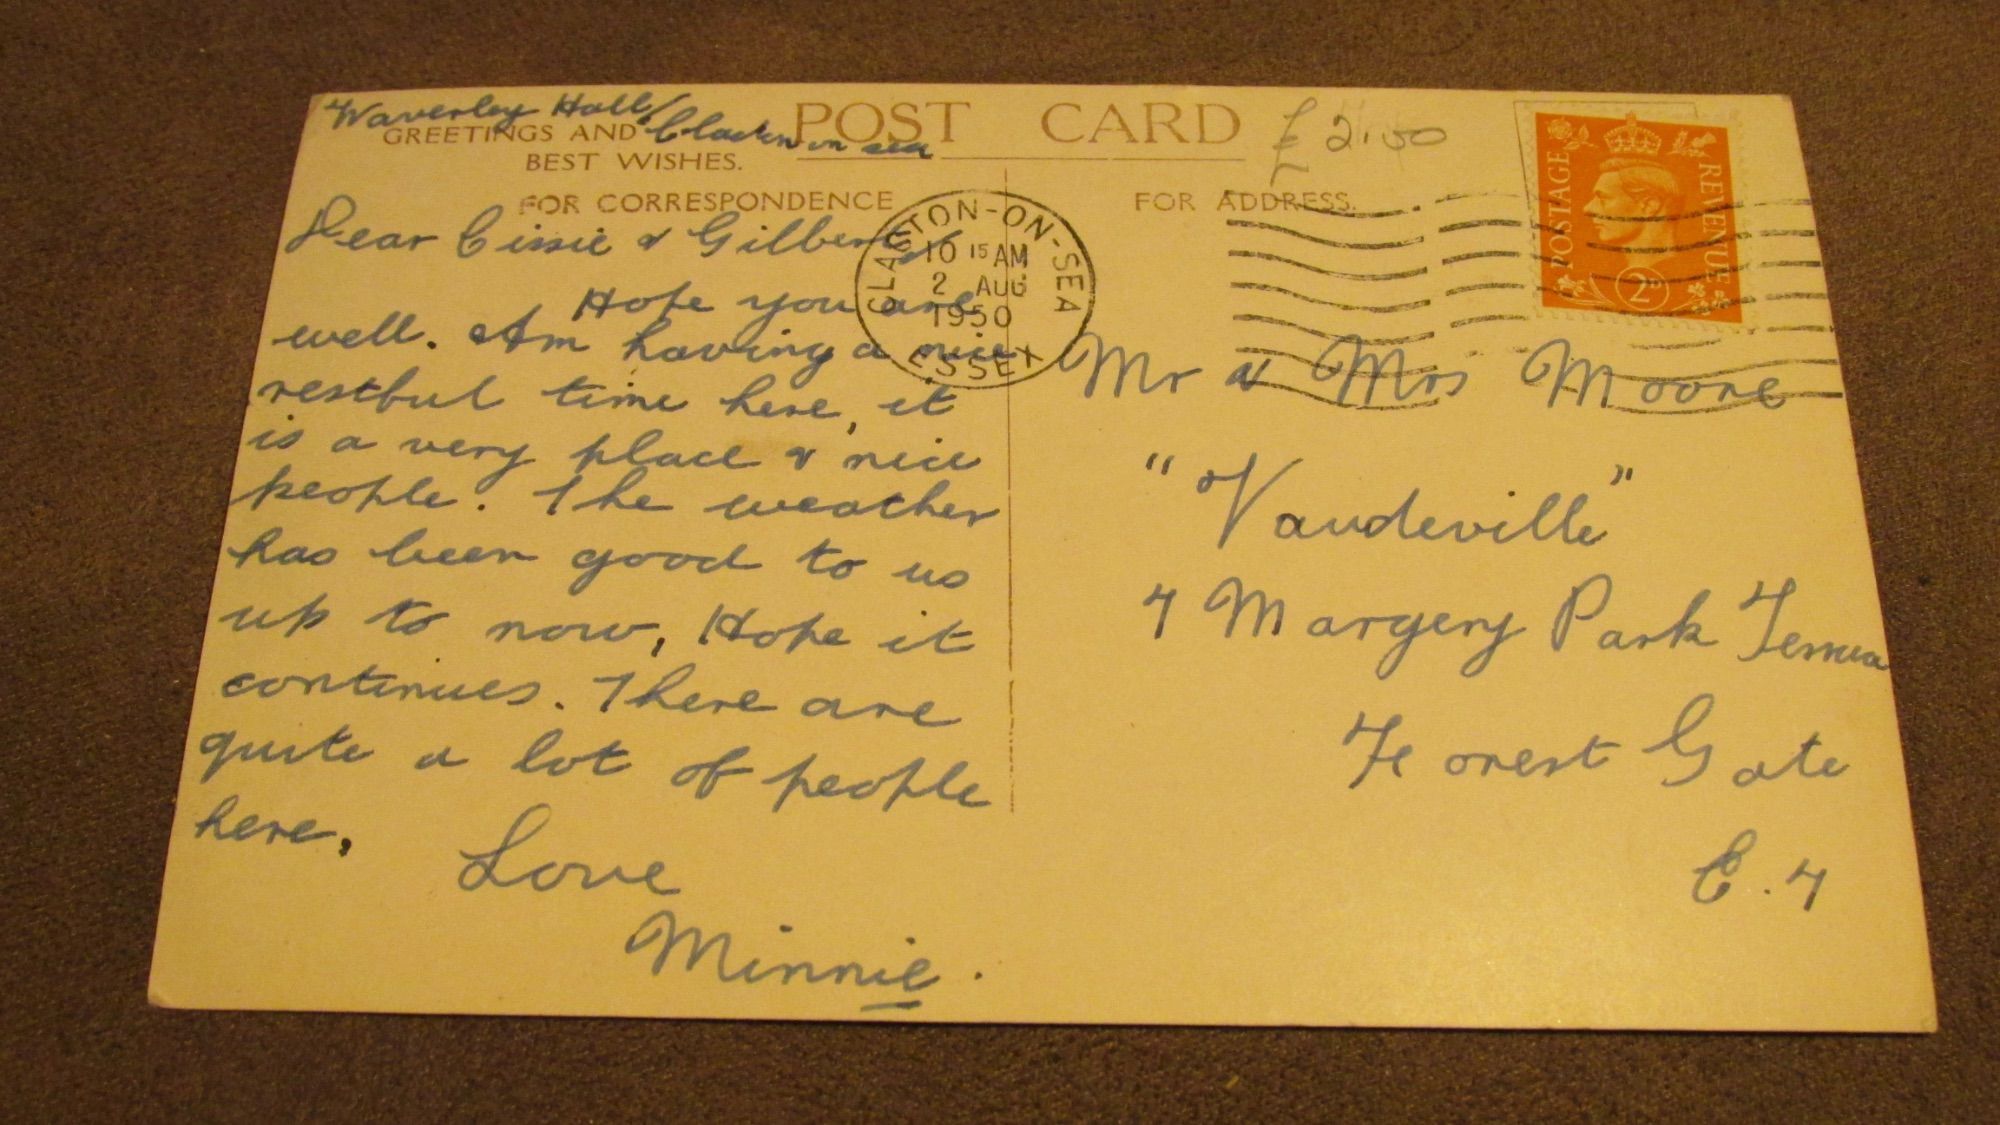 Waverley Hall
Clacton on sea
POST CARD
£2.50
GREETINGS AND
BEST WISHES.
FOR CORRESPONDENCE
FOR ADDRESS.
POSTAGE
REVENUE
2D
CLACTON-ON-SEA
10 15 AM
2 AUG
1950
ESSEX
Dear Cissie & Gilbert
Hope you are
well. Am having a nice
restful time here, it
is a very place & nice
people. The weather
has been good to us
up to now, Hope it
continues. There are
quite a lot of people
here.
Love
Minnie.
Mr & Mrs Moore
"Vaudeville"
7 Margery Park
Forest Gate
E.7